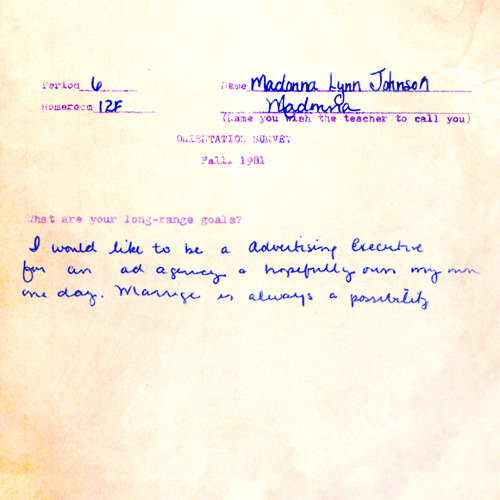 Period 6 Name Madonna Lynn Johnson
Homeroom 12F Madonna
(Name you wish the teacher to call you)
ORIENTATION SURVEY
Fall, 1981
What are your long-range goals?
I would like to be a Advertising Executive
for an ad agency & hopefully own my own
one day. Marrige is always a possibility